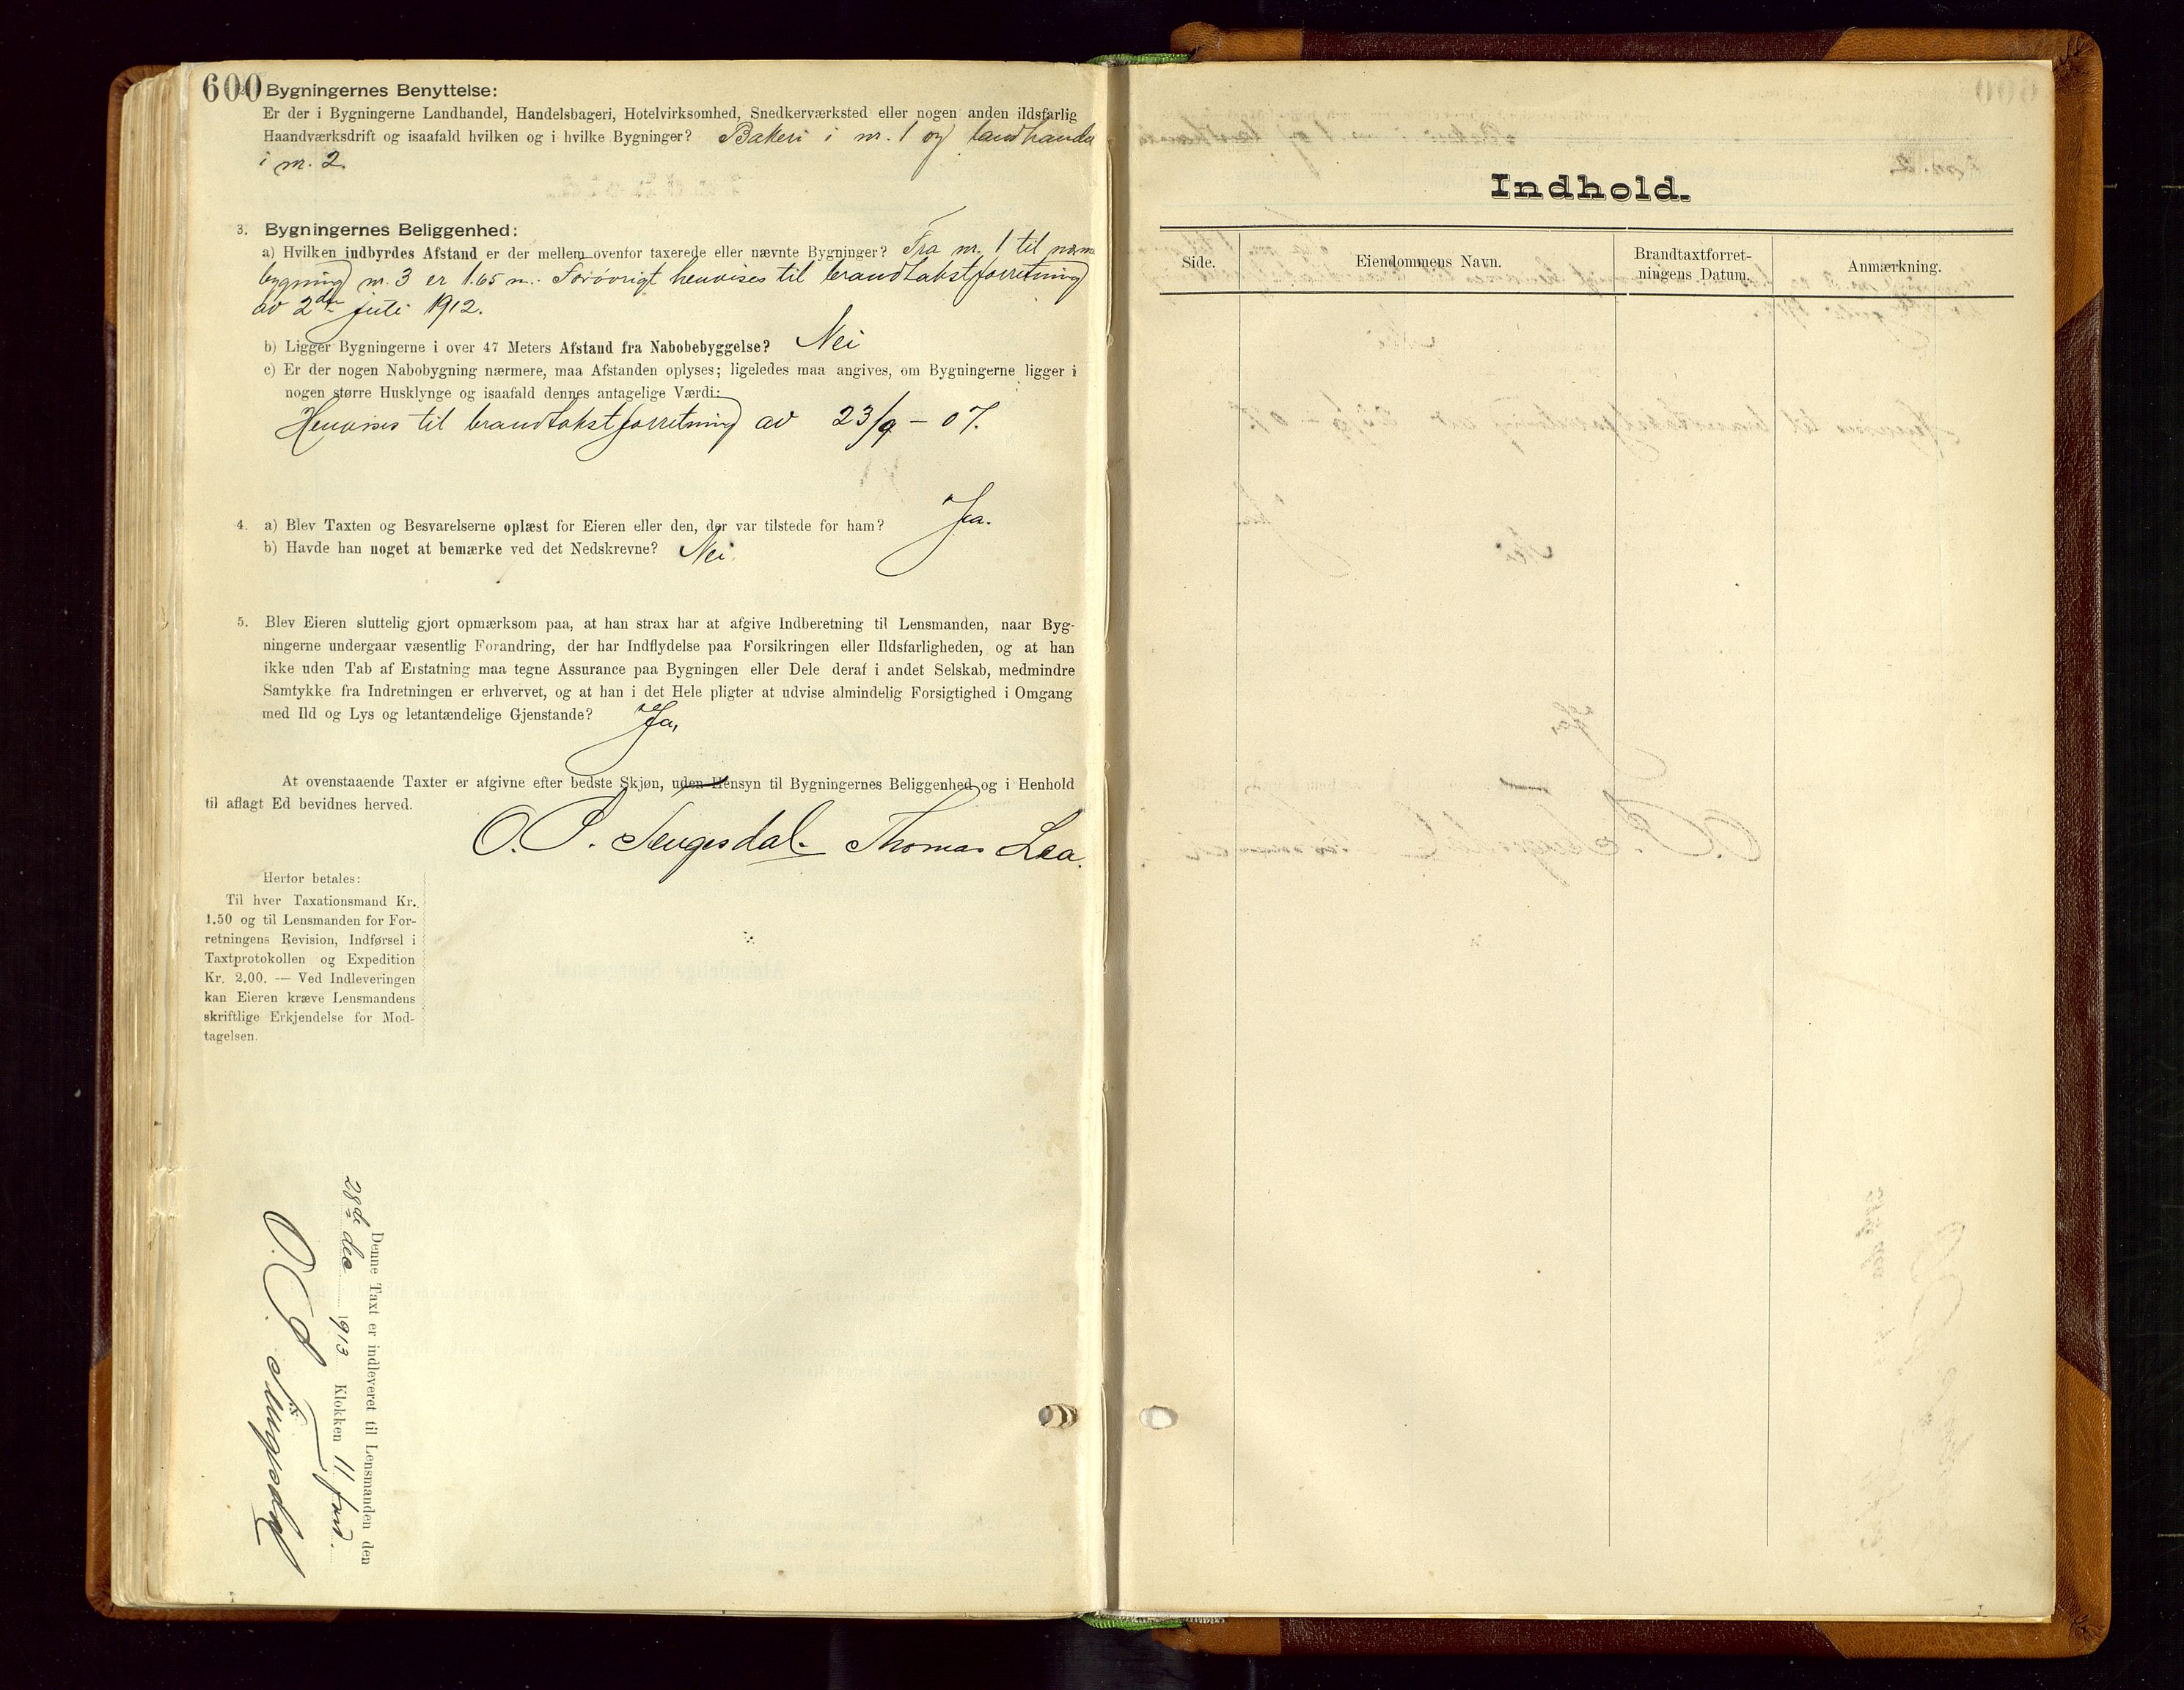 600
2. Bygningernes Benyttelse:
Er der i Bygningerne Landhandel, Handelsbageri, Hotelvirksomhed, Snedkerværksted eller nogen anden ildsfarlig
Haandværksdrift og isaafald hvilken og i hvilke Bygninger? Bakeri i nr. 1 og landhandel
i nr. 2.
3. Bygningernes Beliggenhed:
a) Hvilken indbyrdes Afstand er der mellem ovenfor taxerede eller nævnte Bygninger? Fra nr. 1 til
bygning nr. 3 er 1.65 m. Forøvrigt henvises til brandtakstforretning
av 2den juli 1912.
b) Ligger Bygningerne i over 47 Meters Afstand fra Nabobebyggelse? Nei
c) Er der nogen Nabobygning nærmere, maa Afstanden oplyses; ligeledes maa angives, om Bygningerne ligger i
nogen større Husklynge og isaafald dennes antagelige Værdi:
Henvises til brandtakstforretning av 23/9 – 07.
4. a) Blev Taxten og Besvarelserne oplæst for Eieren eller den, der var tilstede for ham? Ja.
b) Havde han noget at bemærke ved det Nedskrevne? Nei.
5. Blev Eieren sluttelig gjort opmærksom paa, at han strax har at afgive Indberetning til Lensmanden, naar Byg-
ningerne undergaar væsentlig Forandring, der har Indflydelse paa Forsikringen eller Ildsfarligheden, og at han
ikke uden Tab af Erstatning maa tegne Assurance paa Bygningen eller Dele deraf i andet Selskab, medmindre
Samtykke fra Indretningen er erhvervet, og at han i det Hele pligter at udvise almindelig Forsigtighed i Omgang
med Ild og Lys og letantændelige Gjenstande? Ja,
At ovenstaaende Taxter er afgivne efter bedste Skjøn, uden Hensyn til Bygningernes Beliggenhed og i Henhold
til aflagt Ed bevidnes herved.
O. P. Tengesdal. Thomas Lea.
Herfor betales:
Til hver Taxationsmand Kr.
1.50 og til Lensmanden for For-
retningens Revision, Indførsel i
Taxtprotokollen og Expedition
Kr. 2.00. — Ved Indleveringen
kan Eieren kræve Lensmandens
skriftlige Erkjendelse for Mod-
tagelsen.
Denne Taxt er indleveret til Lensmanden den
28de dec 1913 Klokken 11 form.
O. P. Tengesdal
Indhold.
Side.
Eiendommens Navn.
Brandtaxtforret-
ningens Datum.
Anmærkning.